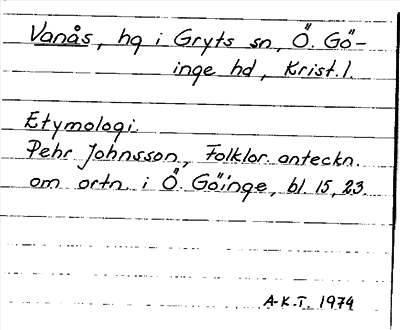 Vanås, hg i Gryts sn, Ö. Gö-
inge hd, Krist. l.
Etymologi.
Pehr Johnsson, Folklor. anteckn.
om ortn. i Ö. Göinge, bl. 15, 23.
A-K.T. 1974